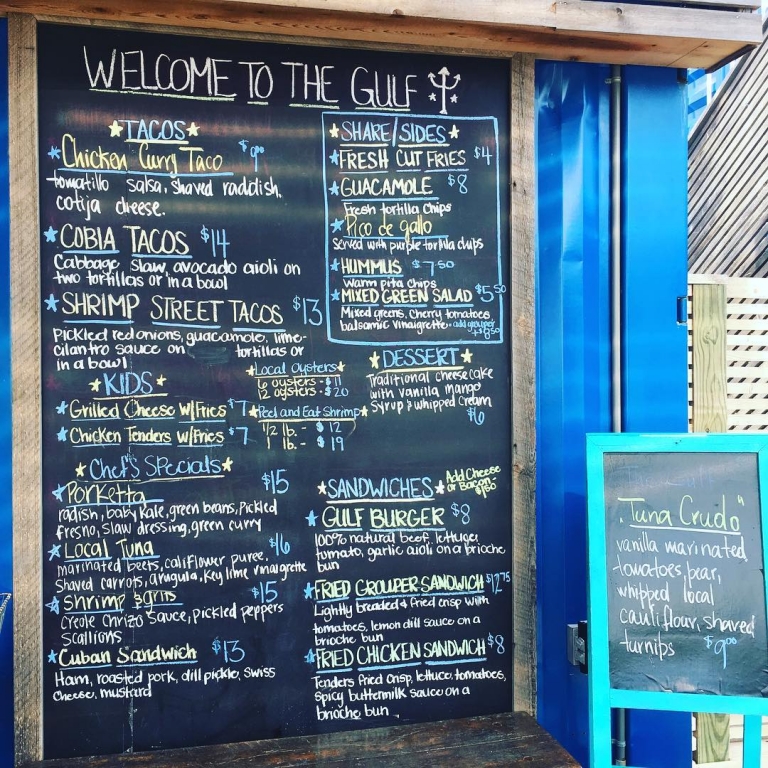 WELCOME TO THE GULF
TACOS
Chicken Curry Taco $9⁰⁰
tomatillo salsa, shaved raddish,
cotija cheese.
COBIA TACOS $14
Cabbage slaw, avocado aioli on
two tortillas or in a bowl
SHRIMP STREET TACOS $13
Pickled red onions, guacamole, lime-
cilantro sauce on tortillas or
in a bowl
KIDS
Grilled Cheese w/Fries $7
Chicken Tenders w/Fries $7
Local Oysters
6 oysters - $11
12 oysters - $20
Peel and Eat Shrimp
1/2 lb. - $12
1 lb. - $19
Chef's Specials
Porketta $15
radish, baby kale, green beans, Pickled
fresno, slaw dressing, green curry
Local Tuna $16
marinated beets, califlower puree,
Shaved carrots, arugula, key lime vinaigrette
Shrimp & grits $15
Creole Chrizo Sauce, pickled peppers
Scallions
Cuban Sandwich $13
Ham, roasted pork, dill pickle, Swiss
Cheese, mustard
SHARE/SIDES
FRESH CUT FRIES $4
GUACAMOLE $8
Fresh tortilla Chips
Pico de gallo
Served with purple tortilla chips
HUMMUS $7.50
Warm pita Chips
MIXED GREEN SALAD $5.50
Mixed greens, Cherry tomatoes
balsamic vinaigrette - add grouper
+ 8.50
DESSERT
Traditional cheesecake
with vanilla mango
Syrup & whipped Cream
$6
SANDWICHES
Add Cheese
or Bacon -
$1.50
GULF BURGER $8
100% natural beef, lettuce,
tomato, garlic aioli on a brioche
bun
FRIED GROUPER SANDWICH $12.75
Lightly breaded & fried crisp with
tomatoes, lemon dill sauce on a
brioche bun
FRIED CHICKEN SANDWICH $8
Tenders fried crisp, lettuce, tomatoes,
Spicy buttermilk sauce on a
brioche bun
"Tuna Crudo"
vanilla marinated
tomatoes, pear,
whipped local
cauliflour, shaved
turnips $9⁰⁰